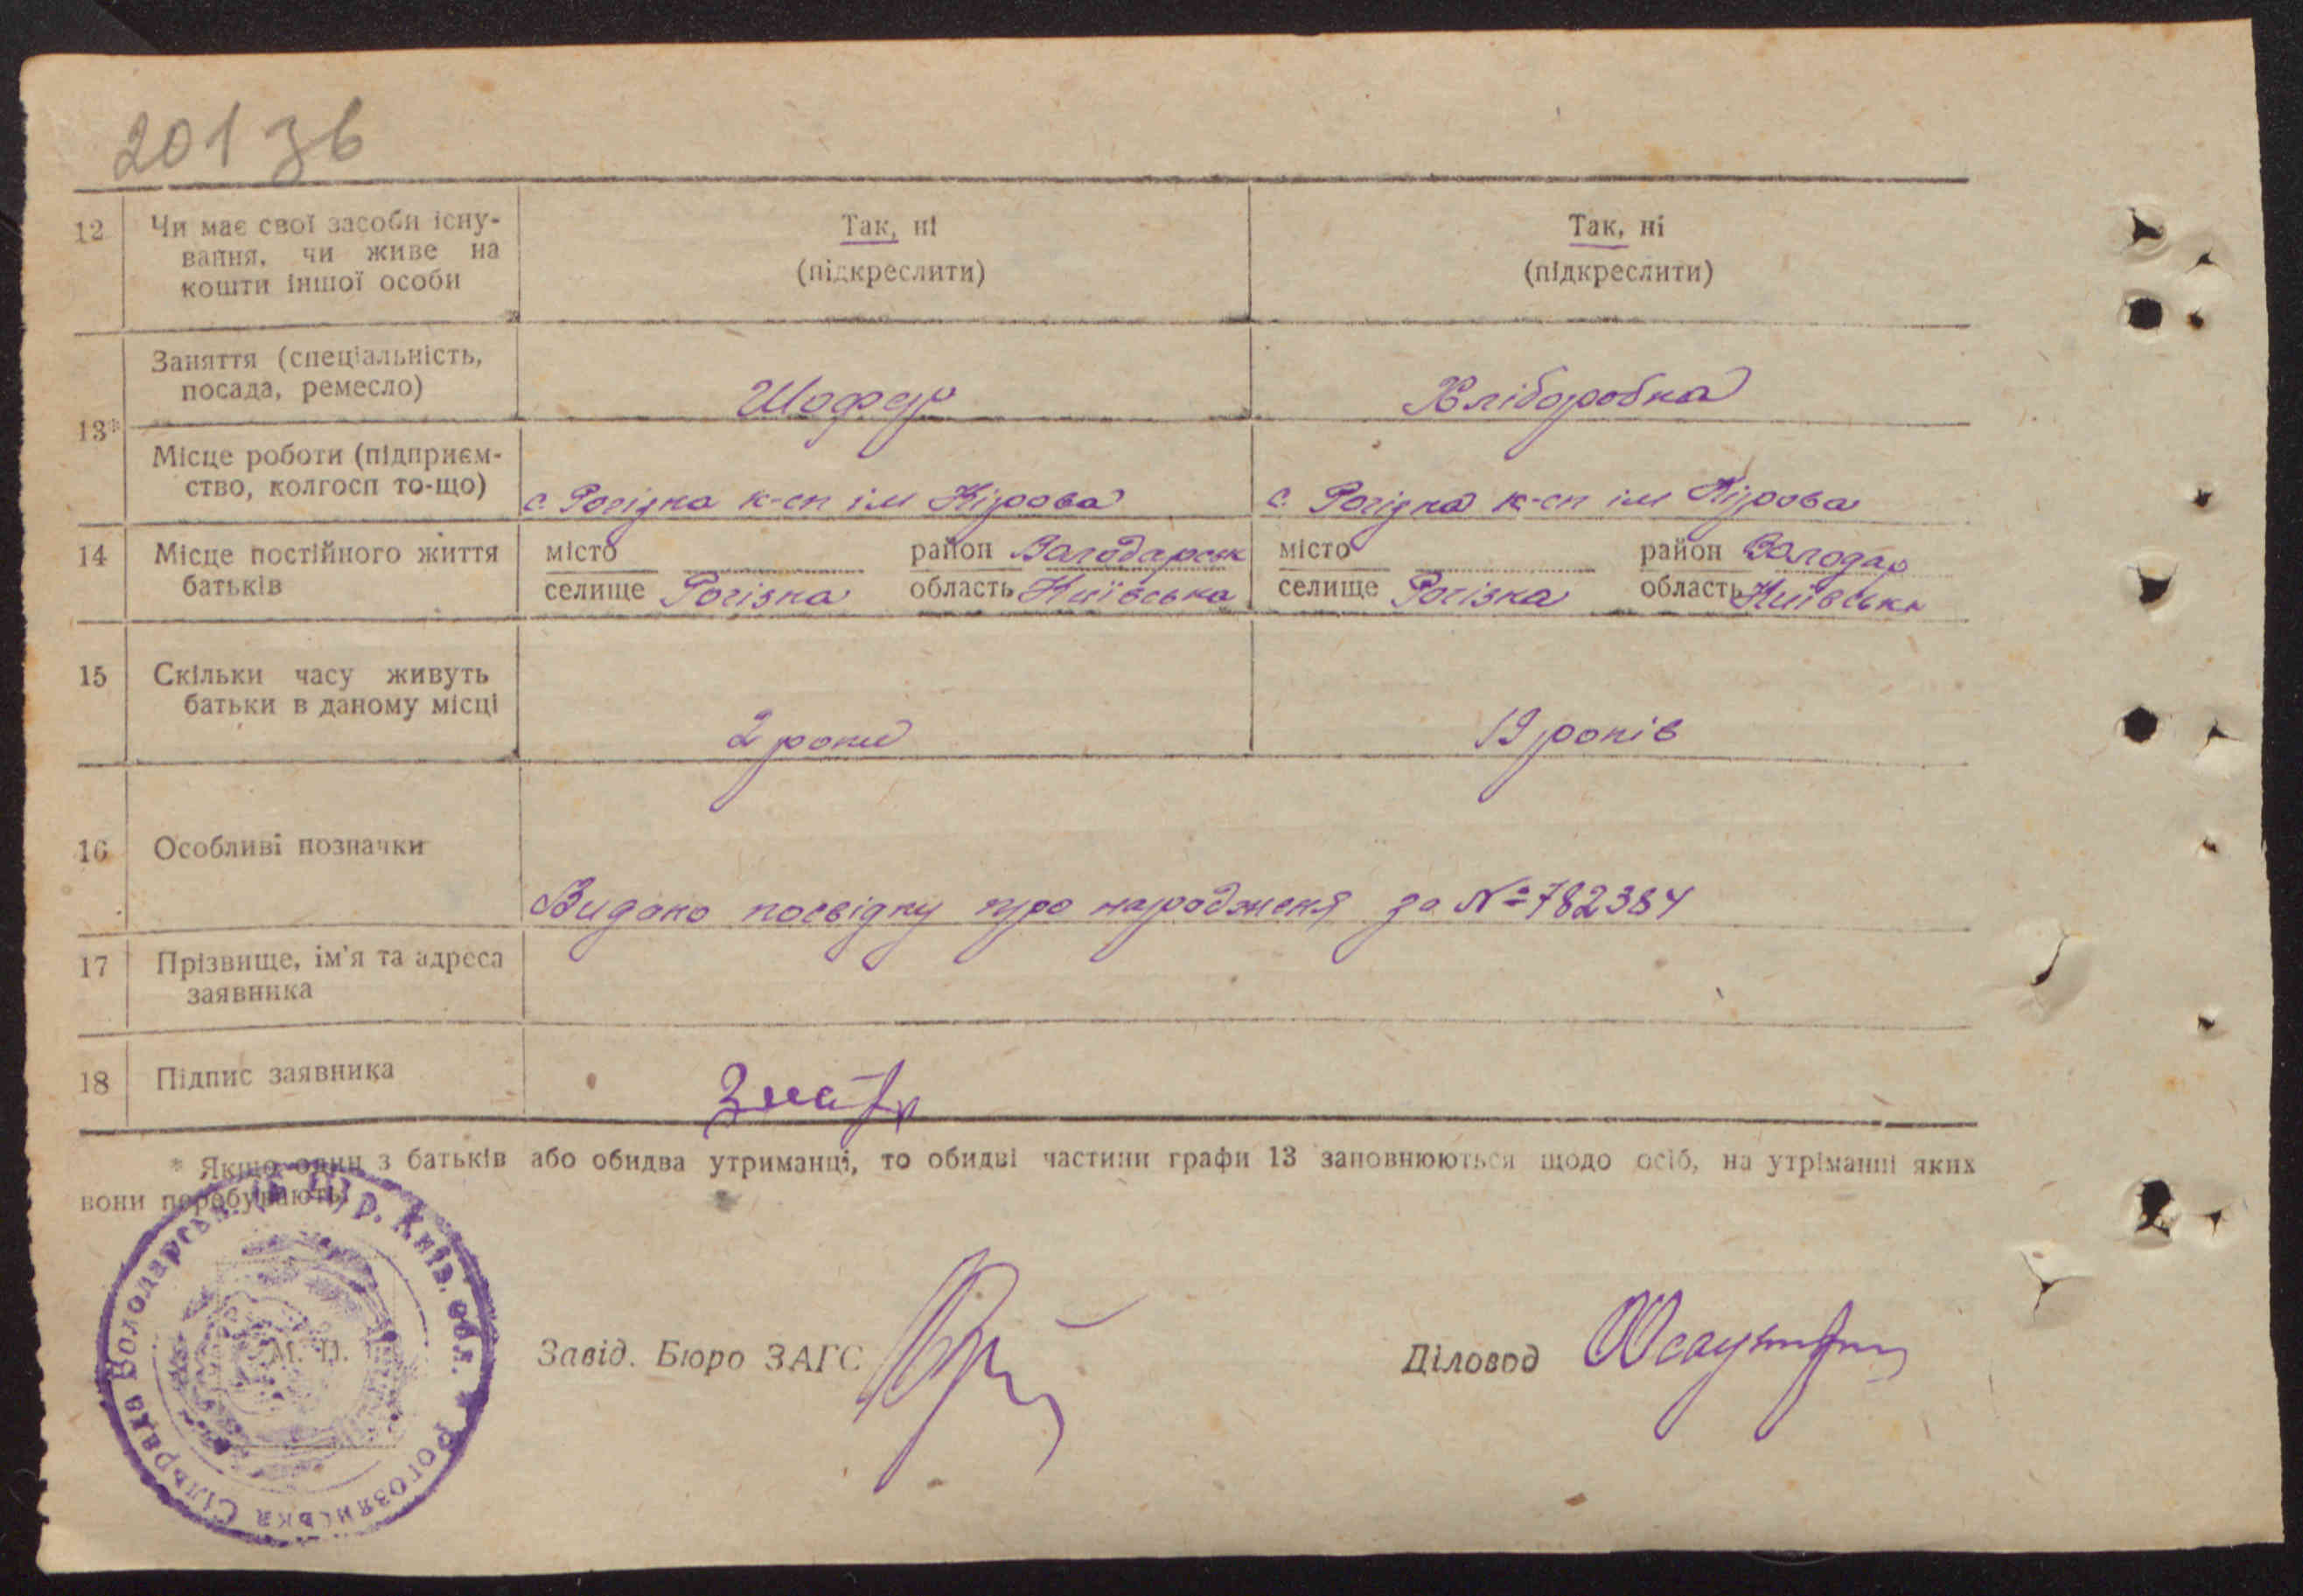 201 зв
12 Чи має свої засоби існу-
вання, чи живе на
кошти іншої особи
Так, ні
(підкреслити)
Так, ні
(підкреслити)
13*
Заняття (спеціальність,
посада, ремесло)
Шофер
Хліборобка
Місце роботи (підприєм-
ство, колгосп то-що)
с. Рогізна к-сп ім Кірова
с. Рогізна к-сп ім Кірова
14 Місце постійного життя
батьків
місто район Володарськ
селище Рогізна область Київська
місто район Володар
селище Рогізна область Київська
15 Скільки часу живуть
батьки в даному місці
2 роки
19 років
16 Особливі позначки
Видано посвідку про народженя за №782384
17 Прізвище, ім'я та адреса
заявника
18 Підпис заявника
* Якщо один з батьків або обидва утриманці, то обидві частини графи 13 заповнюються щодо осіб, на утріманні яких
вони перебувають
М. П.
Володарськ. р. Київ. обл. * Рогозянська Сільрада
Завід. Бюро ЗАГС
Діловод